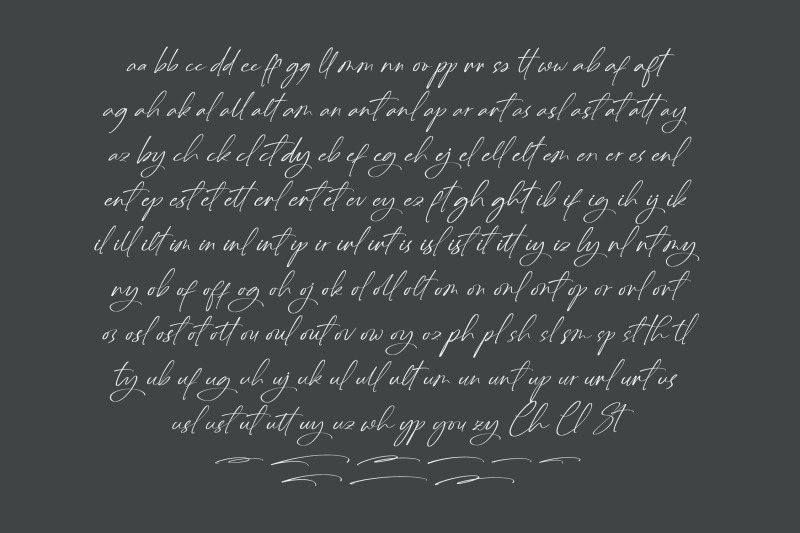 aa bb cc dd ee ff gg ll mm nn oo pp rr ss tt ww ab af aft
ag ah ak al all alt am an ant anl ap ar art as asl ast at att ay
az by ch ck cl ct dy eb ef eg eh ej el ell elt em en er es enl
ent ep est et ett erl ert et ev ey ez ft gh ght ib if ig ih ij ik
il ill ilt im in inl int ip ir irl irt is isl ist it itt iy iz ly rl rt my
ny ob of off og oh oj ok ol oll olt om on onl ont op or orl ort
os osl ost ot ott ou oul out ov ow oy oz ph pl sh sl sm sp st th tl
ty ub uf ug uh uj uk ul ull ult um un unt up ur url urt us
usl ust ut utt uy uz wh yp you zy Ch Cl St